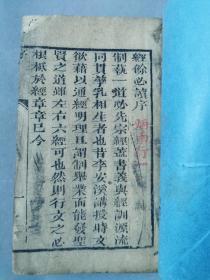 經餘必讀序
制埶一道必先宗經蓋書義與經訓源流
同貫孳乳相生者也昔李安溪講授時文
欲藉以通經明理且謂舉業而能發聖
賢之道雖左右六經可也然則行文之必
根柢於經章章已今